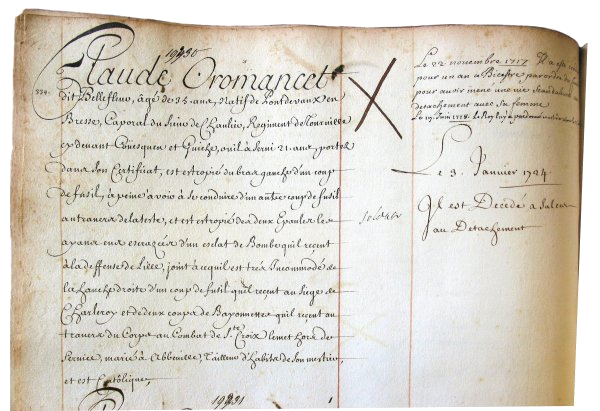 19230
Claude Dromancet
dit Bellefleur, âgé de 38 ans, Natif de Pontdevaux en
Bresse, Caporal du Sieur de Chaulin, Regiment de Tourville
cy devant et Guiche, où il a servi 21 ans, porte
dans son Certificat, est estropié du bras gauche d'un coup
de fusil, à peine à voir à se conduire d'un autre coup de fusil
au travers de la teste, et est estropié des deux Epaules les
ayant eus escrazées d'un esclat de Bombe qu'il receut
à la deffense de Lille, joint à ce qu'il est trés Incommodé de
la hanche droite d'un coup de fusil qu'il receut au Siege de
Charleroy et de deux coups de Bayonnettes qu'il receut au
travers du Corps au Combat de Ste Croix le met hors de
Service, marié à Abbeville, Tailleur d'habits de Son mestier,
et est Catholique,
19231
Le 22 novembre 1717 Il a esté
pour un an a Bicestre par ordre du
pour avoir mené une vie Scandaleuse au
detachement avec Sa femme
Le 3. Janvier 1724
Il est Decédé a
au Detachement